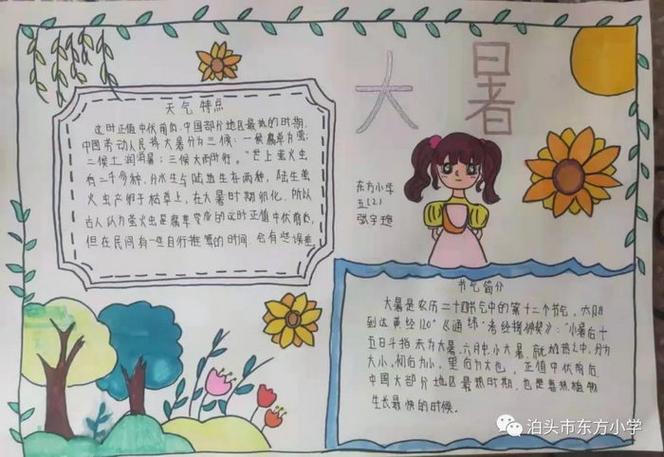 大暑
东方小学
五(2)
天气特点
这时正值中伏前后,中国部分地区最热的时期,
中国劳动人民将大暑分为三候:一候腐草为萤;
二候土润溽暑;三候大雨时行。世上萤火虫
有二千多种,分水生与陆生两种,陆生萤
火虫产卵于枯草上,在大暑时期卵化,所以
古人认为萤火虫是腐草变成的这时正值中伏前后,
但在民间有一些自行推算的时间,会有些误差
节气简介
大暑是农历二十四节气中的第十二个节气,太阳
到达黄经120°《通纬·孝经援神契》:"小暑后十
五日斗指未为大暑,六月中小大暑,就极热之中,分为
大小,初后为小,望后为大也,正值中伏前后
中国大部分地区最热时期,也是喜热植物
生长最快的时候。
泊头市东方小学